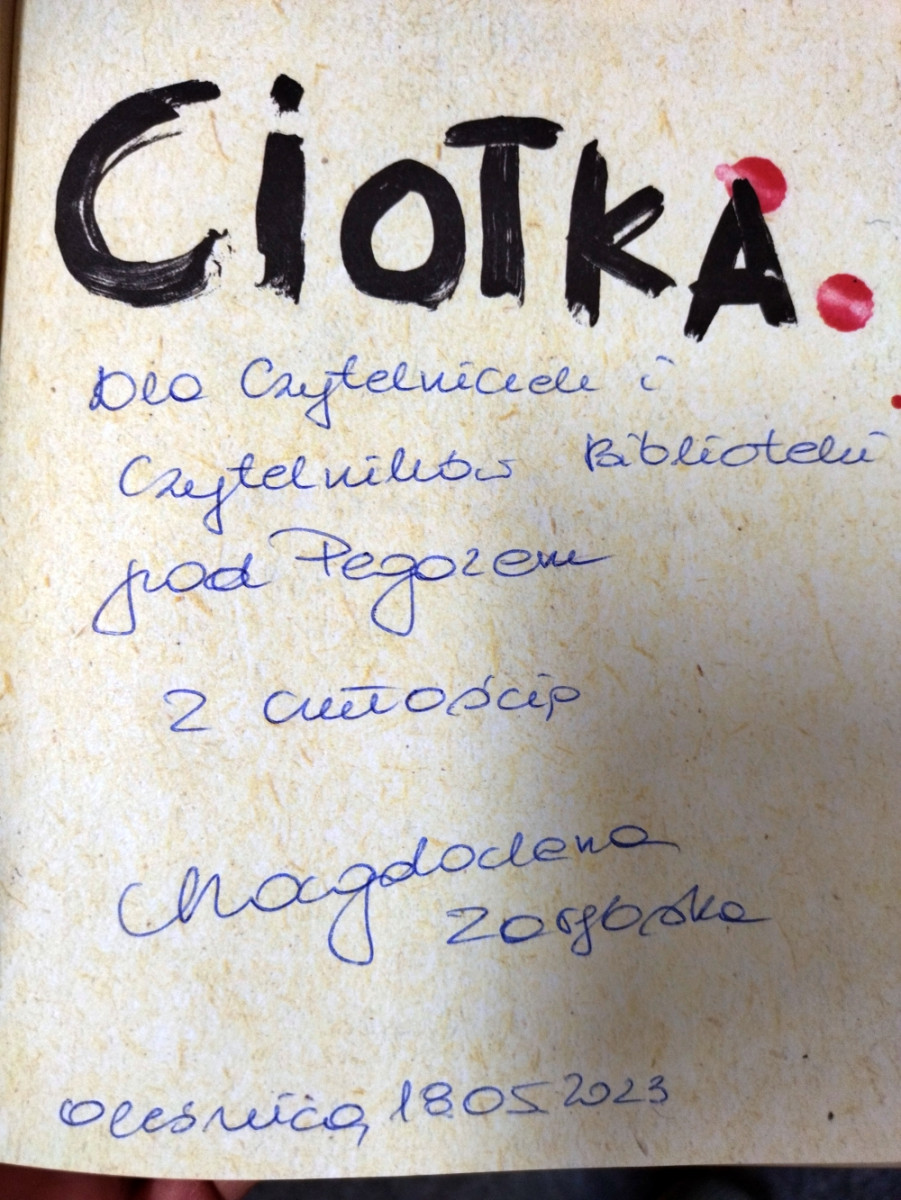 CiOTKA.
Dla Czytelniczek i
Czytelników Biblioteki
pod Pegazem
z czułością
Magdalena
Oleśnica, 18.05.2023